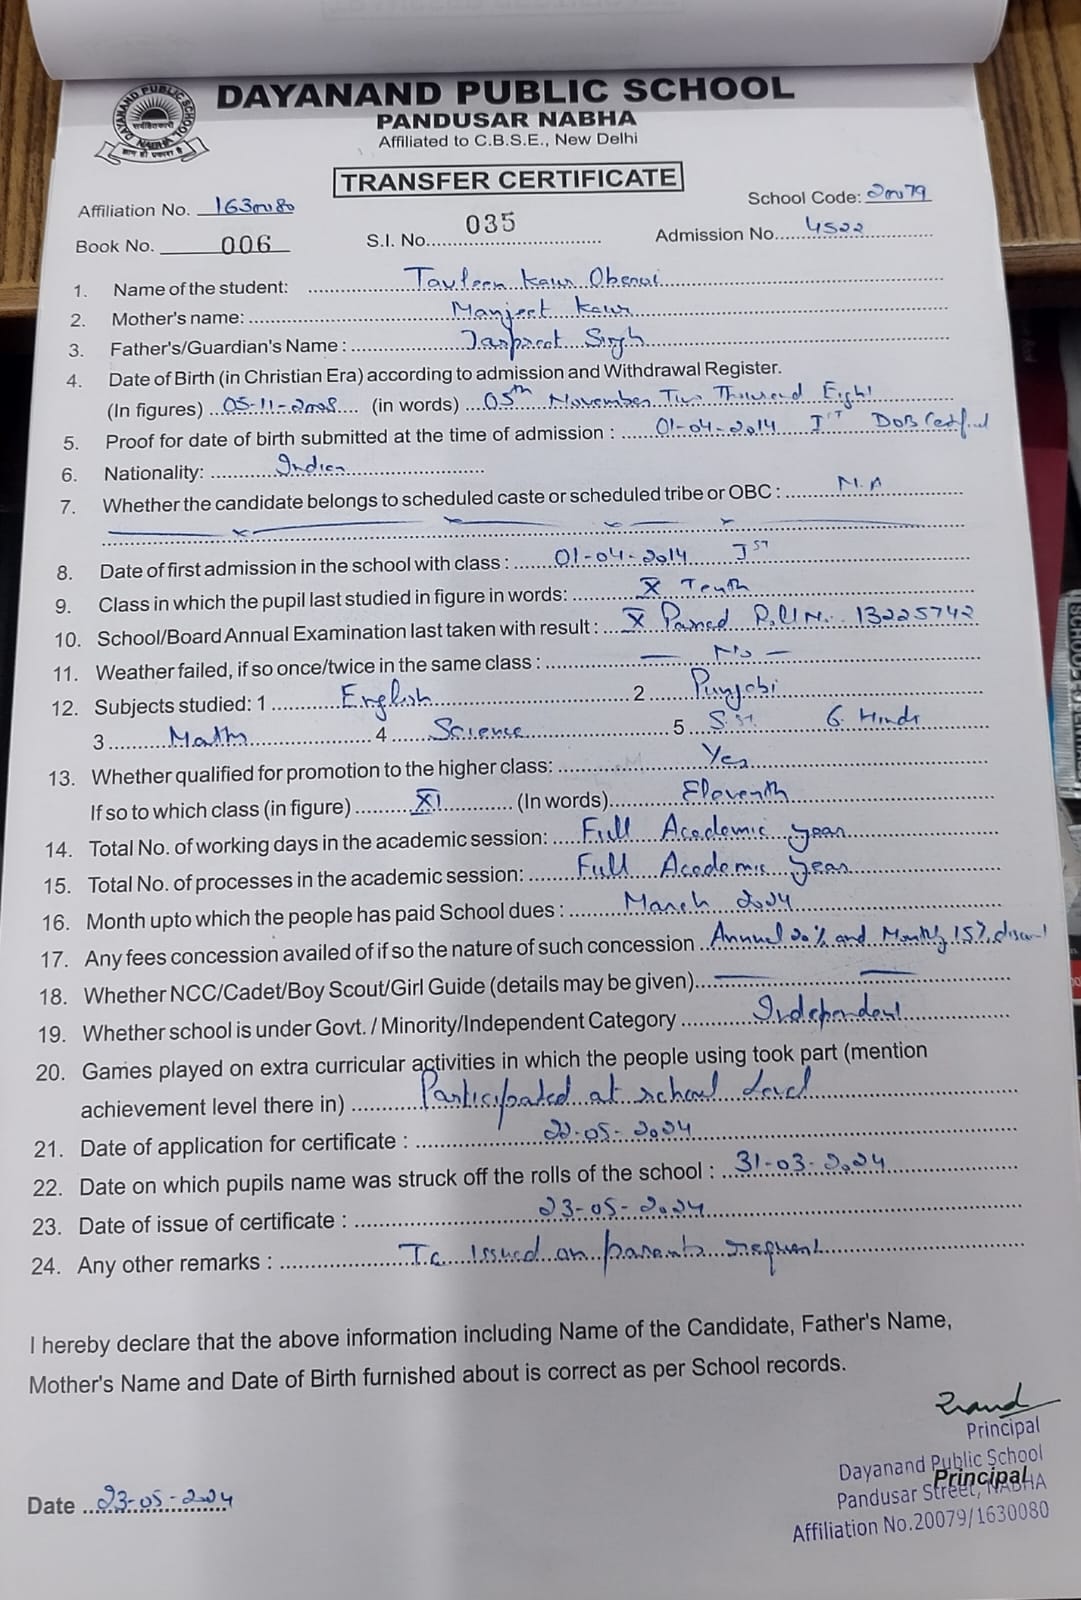 DAYANAND PUBLIC SCHOOL
PANDUSAR NABHA
Affiliated to C.B.S.E., New Delhi
TRANSFER CERTIFICATE
Affiliation No. 1630080
School Code: 20079
Book No. 006
S.I. No. 035
Admission No. 4522
1. Name of the student: Tavleen Kaur Oberoi
2. Mother's name: Manjeet Kaur
3. Father's/Guardian's Name : Jaspreet Singh
4. Date of Birth (in Christian Era) according to admission and Withdrawal Register.
(In figures) 05-11-2008 (in words) 05th November Two Thousand Eight
5. Proof for date of birth submitted at the time of admission : 01-04-2014 Ist DOB
6. Nationality: Indian
7. Whether the candidate belongs to scheduled caste or scheduled tribe or OBC : N.A
8. Date of first admission in the school with class : 01-04-2014 Ist
9. Class in which the pupil last studied in figure in words: X Tenth
10. School/Board Annual Examination last taken with result : X Passed Roll No. 13225742
11. Weather failed, if so once/twice in the same class : – No –
12. Subjects studied: 1 English 2 Punjabi
3 Maths 4 Science 5 S.St. 6. Hindi
13. Whether qualified for promotion to the higher class: Yes
If so to which class (in figure) XI (In words) Eleventh
14. Total No. of working days in the academic session: Full Academic year
15. Total No. of processes in the academic session: Full Academic year
16. Month upto which the people has paid School dues : March 2024
17. Any fees concession availed of if so the nature of such concession Annual 20% and Monthly 15%
18. Whether NCC/Cadet/Boy Scout/Girl Guide (details may be given)
19. Whether school is under Govt. / Minority/Independent Category Independent
20. Games played on extra curricular activities in which the people using took part (mention
achievement level there in) Participated at school level
21. Date of application for certificate : 22-05-2024
22. Date on which pupils name was struck off the rolls of the school : 31-03-2024
23. Date of issue of certificate : 23-05-2024
24. Any other remarks : Tc issued on parents request
I hereby declare that the above information including Name of the Candidate, Father's Name,
Mother's Name and Date of Birth furnished about is correct as per School records.
Principal
Dayanand Public School
Principal
Pandusar Street, NABHA
Affiliation No.20079/1630080
Date 23-05-2024